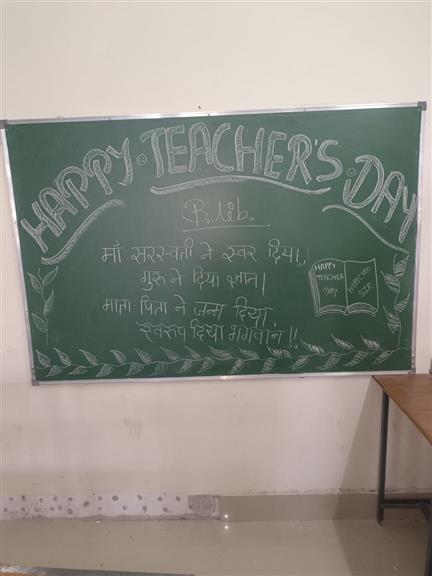 HAPPY TEACHER'S DAY
B.lib.
माँ सरस्वती ने स्वर दिया,
गुरू ने दिया ज्ञान।
माता-पिता ने जन्म दिया
स्वरुप दिया भगवान !!
HAPPY
TEACHER
DAY
RESPECTED
SIR